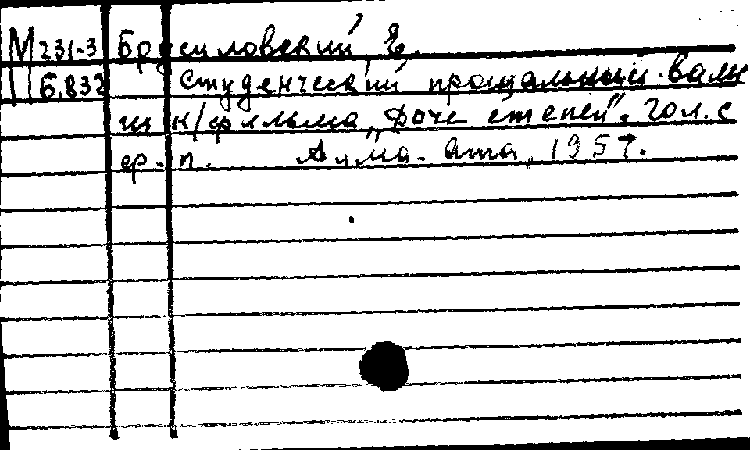 М 231-3 Брусиловский, Е.
Б.832 Студенческий прощальный вальс
из к/фильма „Дочь степей". Гол. с
ф.-п. Алма-Ата, 1957.